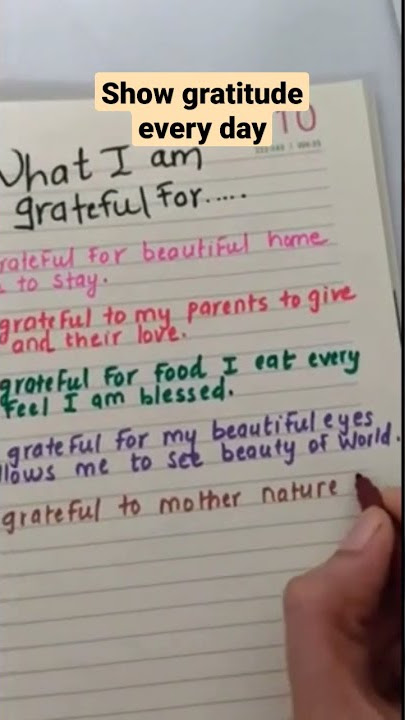 Show gratitude
every day
10
What I am
grateful For.....
rateful For beautiful home
to stay.
grateful to my parents to give
and their love.
grateful For Food I eat every
Feel I am blessed.
grateful for my beautiful eyes
llows me to see beauty of World.
grateful to mother nature